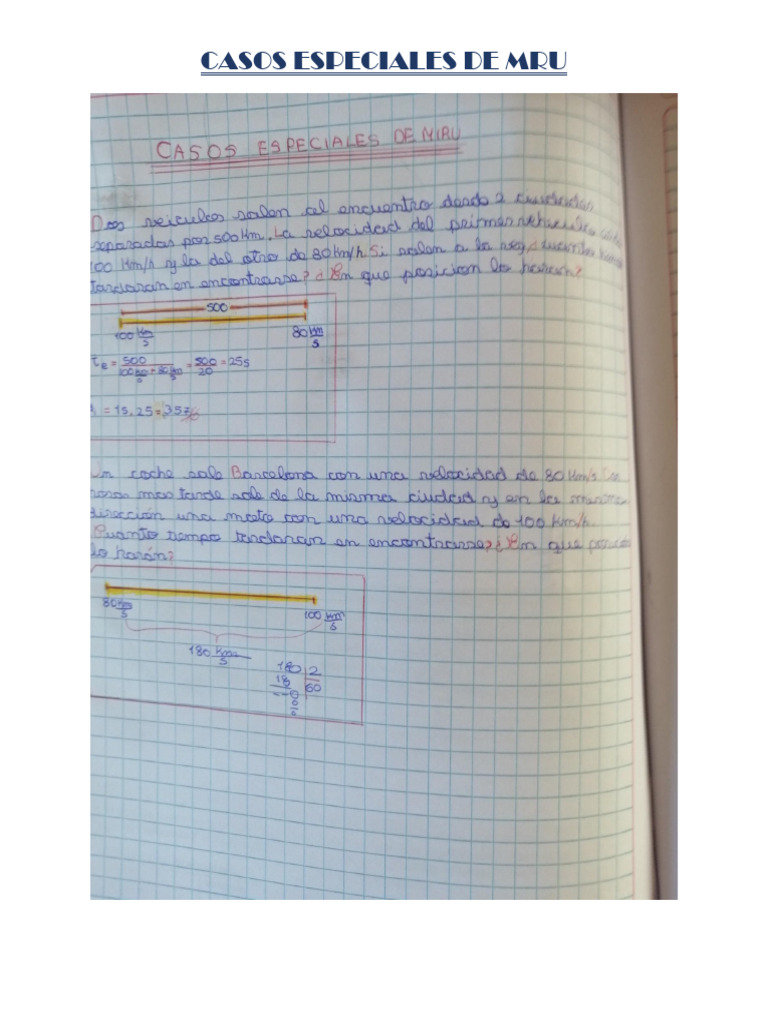 CASOS ESPECIALES DE MRU
CASOS ESPECIALES DE MRU
Dos veiculos salen al encuentro desde 2 ciudades
separadas por 500 Km. La velocidad del primer vehiculo
100 Km/h y la del otro de 80 Km/h Si salen a la vez,
tardaran en encontrarse? ¿En que posicion lo harán?
500
100 Km/s
80 km/s
te = 500 / = 500/20 = 25s
= 15.25 = 357
Un coche sale Barcelona con una velocidad de 80 Km/s
horas mas tarde sale de la misma ciudad y en la misma
dirección una moto con una velocidad de 100 Km/h.
Cuanto tiempo tardaran en encontrarse? ¿En que
lo harán?
80 Km/s
100 Km/s
180 Km/s
180 2
18 60
0
0